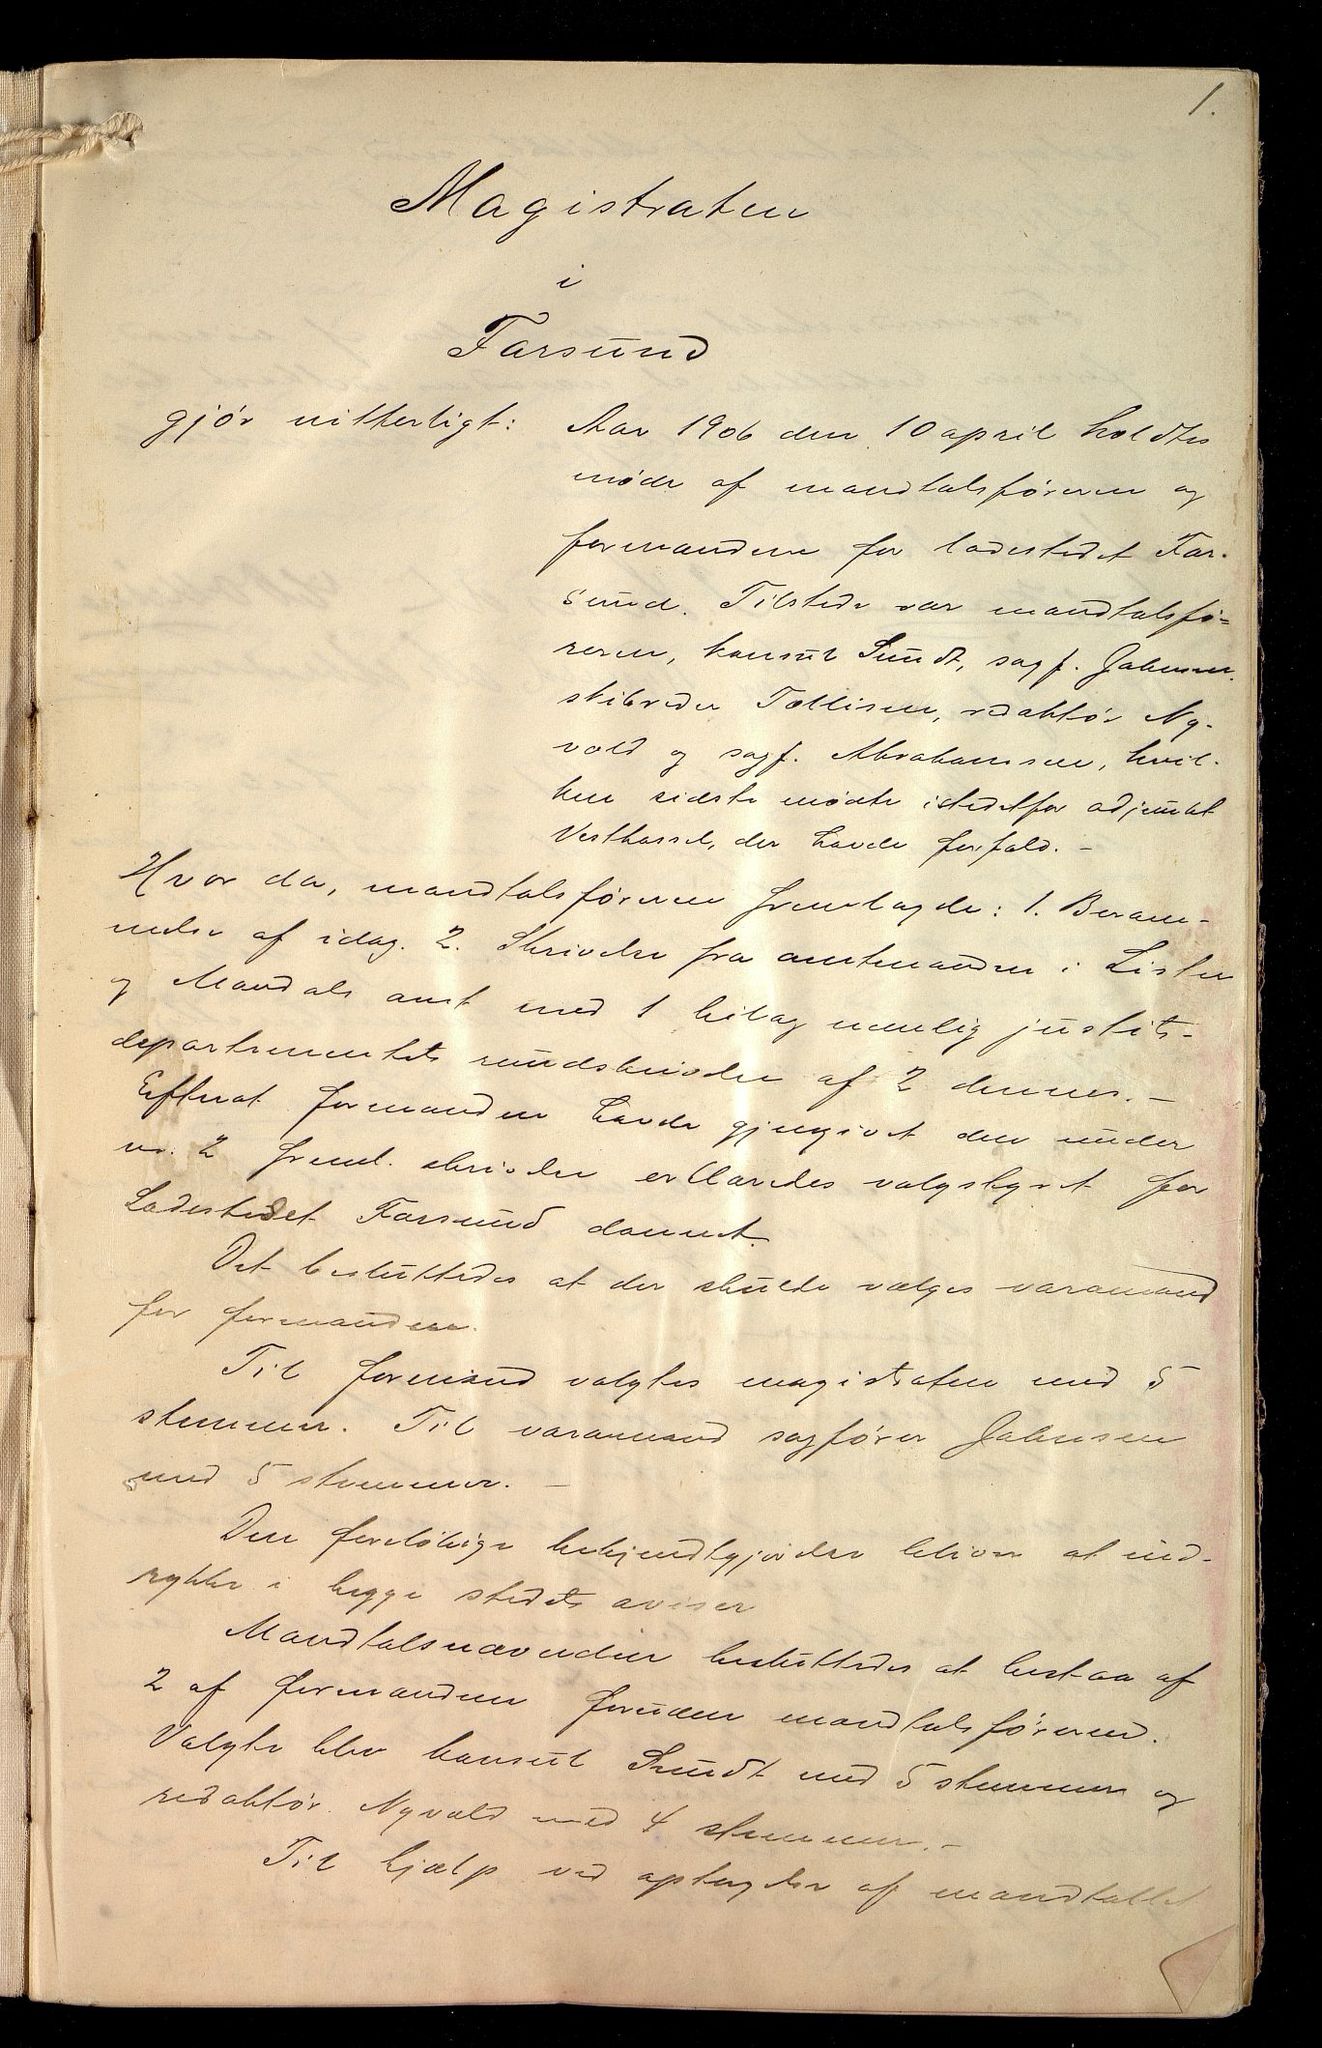 1.
Magistraten
i
Farsund
gjör vitterligt: Aar 1906 den 10 april holdtes
möde af mandtalsföreren og
formændene for ladestedet Far-
sund. Tilstede var mandtalsfö-
reren, konsul Sundt, sagf. Jahnsen
skibsreder Tællisen, redaktör Ny-
vold og sagf. Abrahamsen, hvil-
ken sidste mödte istedetfor adjunkt
Vesthassel, der havde forfald. -
Hvor da, mandtalsföreren fremlagde: 1. Beram-
melse af idag. 2. Skrivelse fra amtmanden i Lister
og Mandals amt med 1 bilag nemlig justits-
departementets rundskrivelse af 2 dennes. -
Efterat formanden havde gjengivet den under
nr. 2 freml. skrivelse erklæredes valgstyret for
Ladestedet Farsund dannet.
Det besluttedes at der skulde vælges varamand
for formanden.
Til formand valgtes magistraten med 5
stemmer. Til varamand sagförer Jahnsen
med 5 stemmer. -
Den forelöbige bekjendtgjörelse bliver at ind-
rykke i begge stedets aviser
Mandtalsnævnden besluttedes at bestaa af
2 af formændene foruden mandtalsföreren.
Valgte blev konsul Sundt med 5 stemmer og
redaktör Nyvold med 4 stemmer. -
Til hjælp ved optagelse af mandtallet